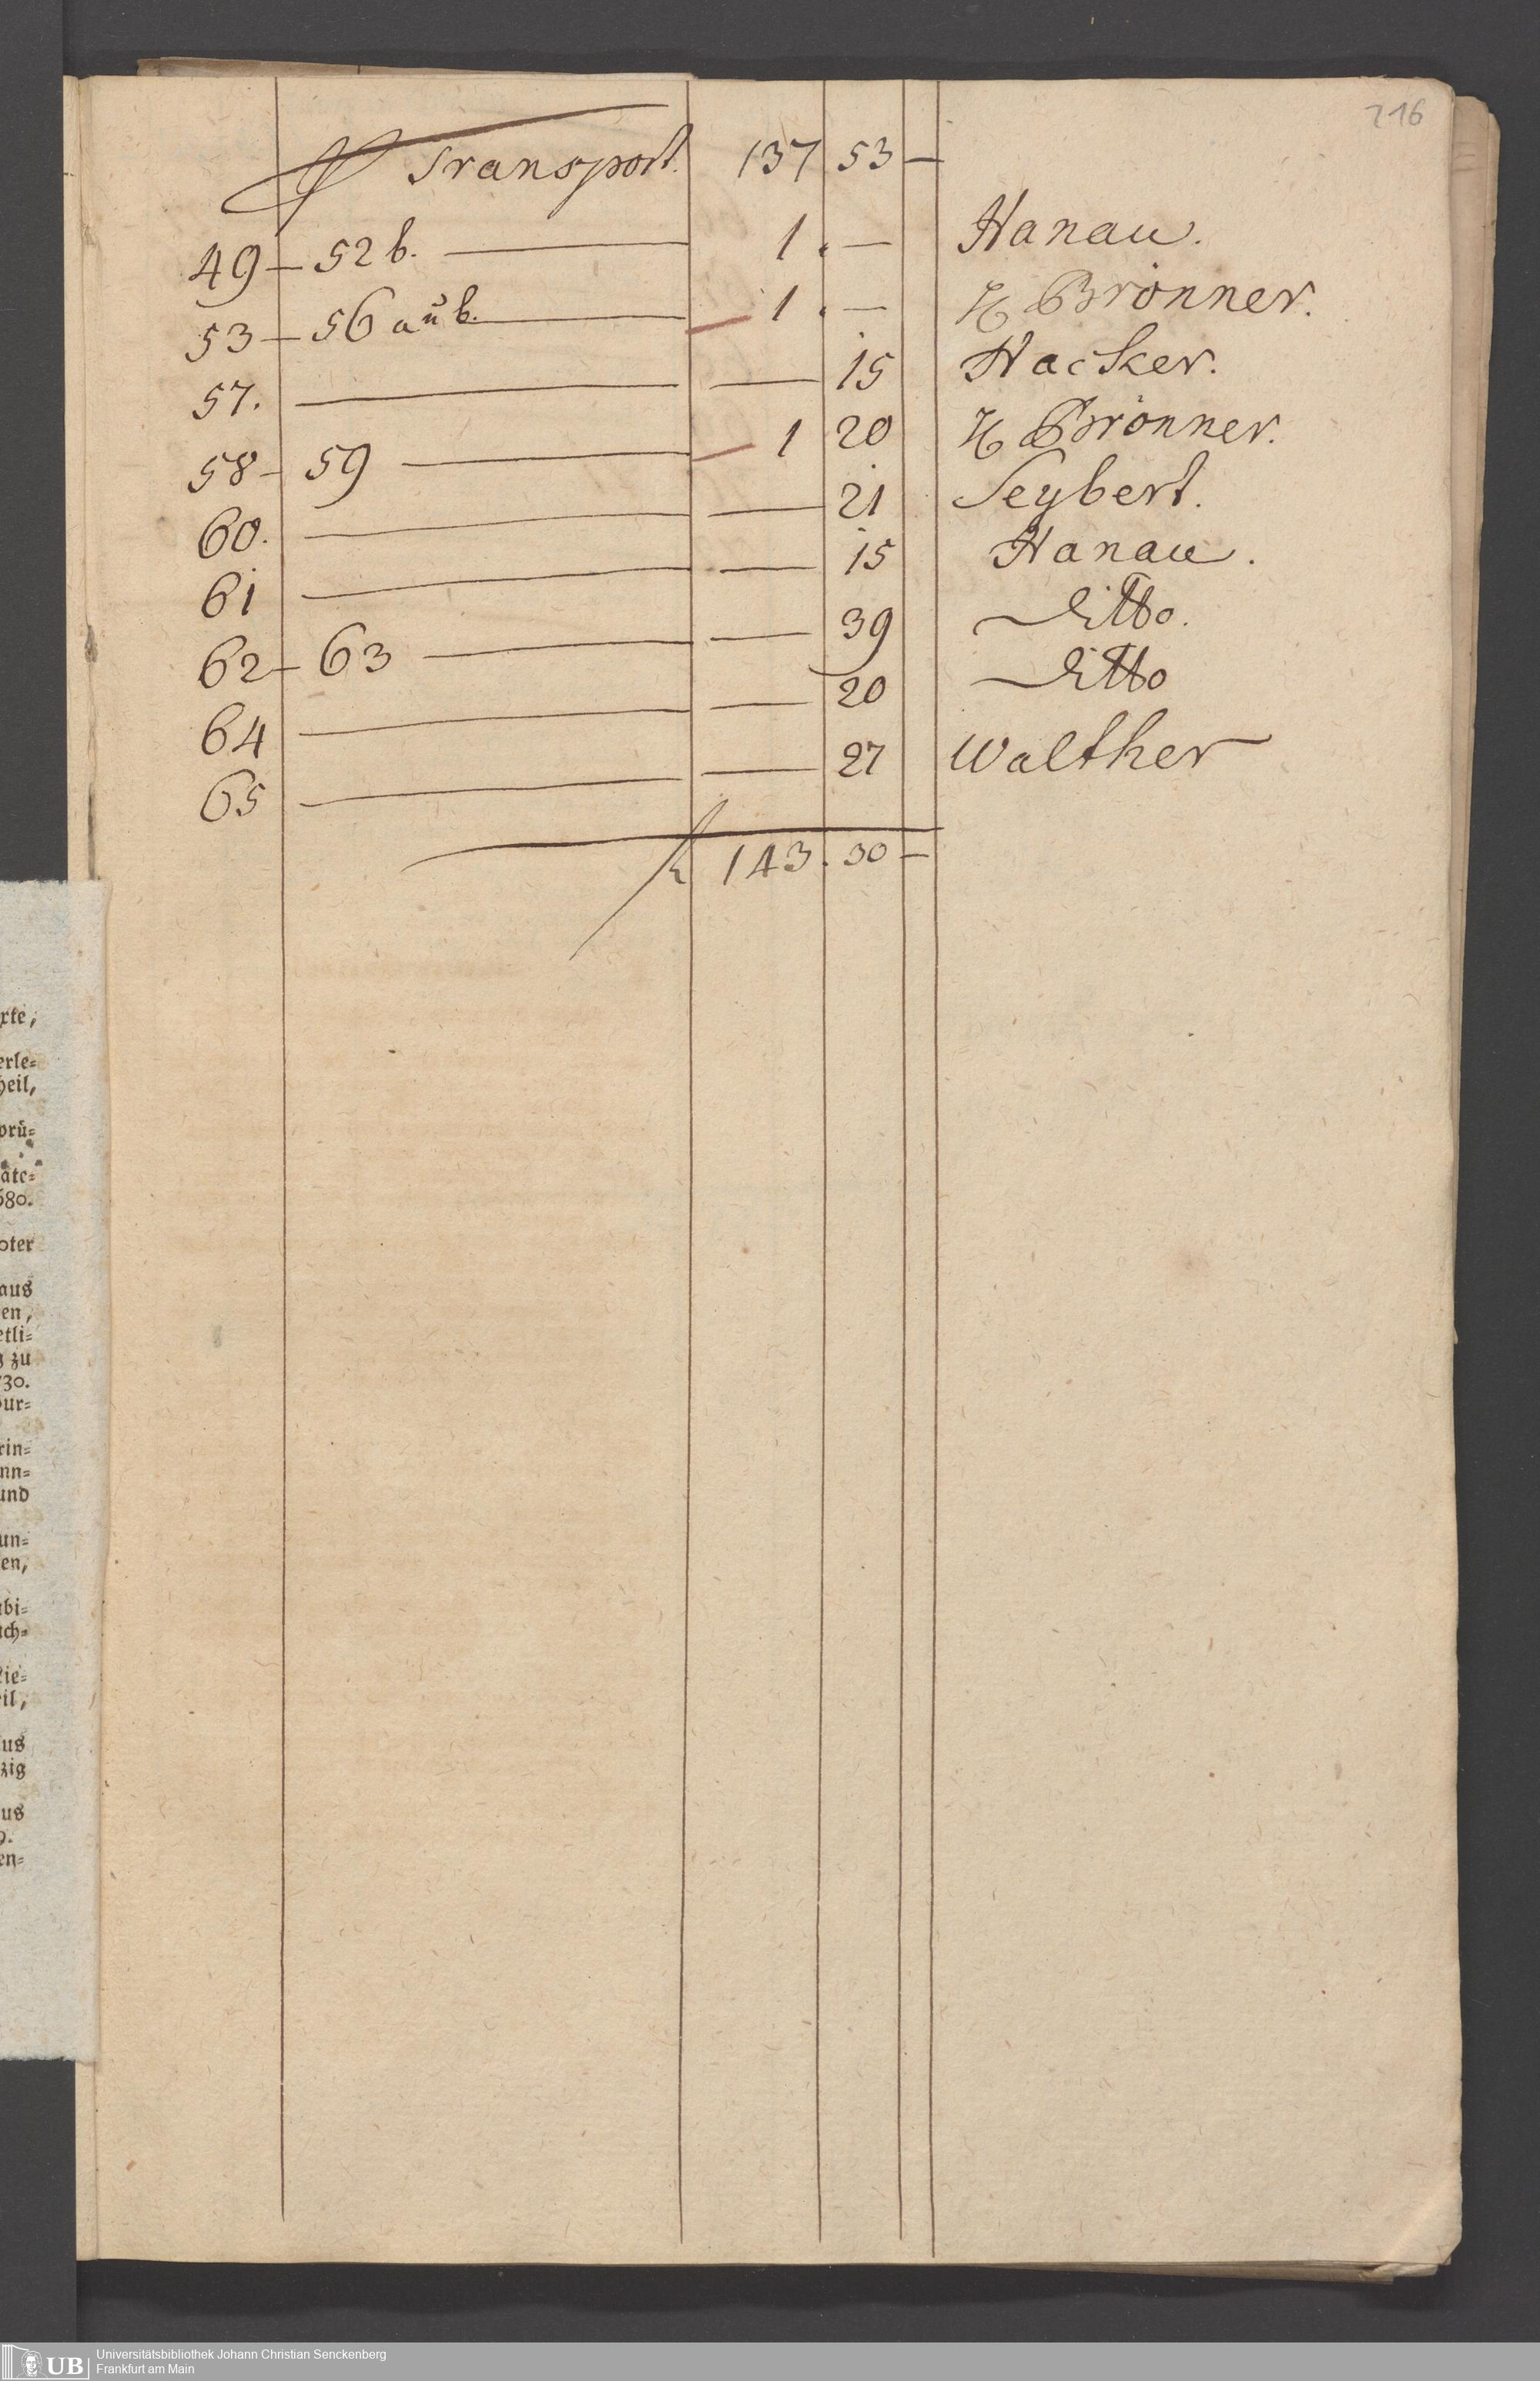 216
Transport. 137 53 —
49 — 52 b. — 1. — Hanau.
53 — 56 a u b. — 1. — H Brönner.
57. — — 15 Hacker.
58 — 59 — 1 20 H Brönner.
60. — — 21 Seybert.
61 — — 15 Hanau.
62 — 63 — — 39 ditto.
64 — — 20 ditto
65 — — 27 Walther
143. 30 —
rte,
erle=
heil,
prü=
äte=
680.
oter
aus
en,
etli=
g zu
730.
our=
rin=
nn=
und
un=
en,
bi=
ch=
Lie=
eil,
us
zig
us
9.
en=
UB
Universitätsbibliothek Johann Christian Senckenberg
Frankfurt am Main